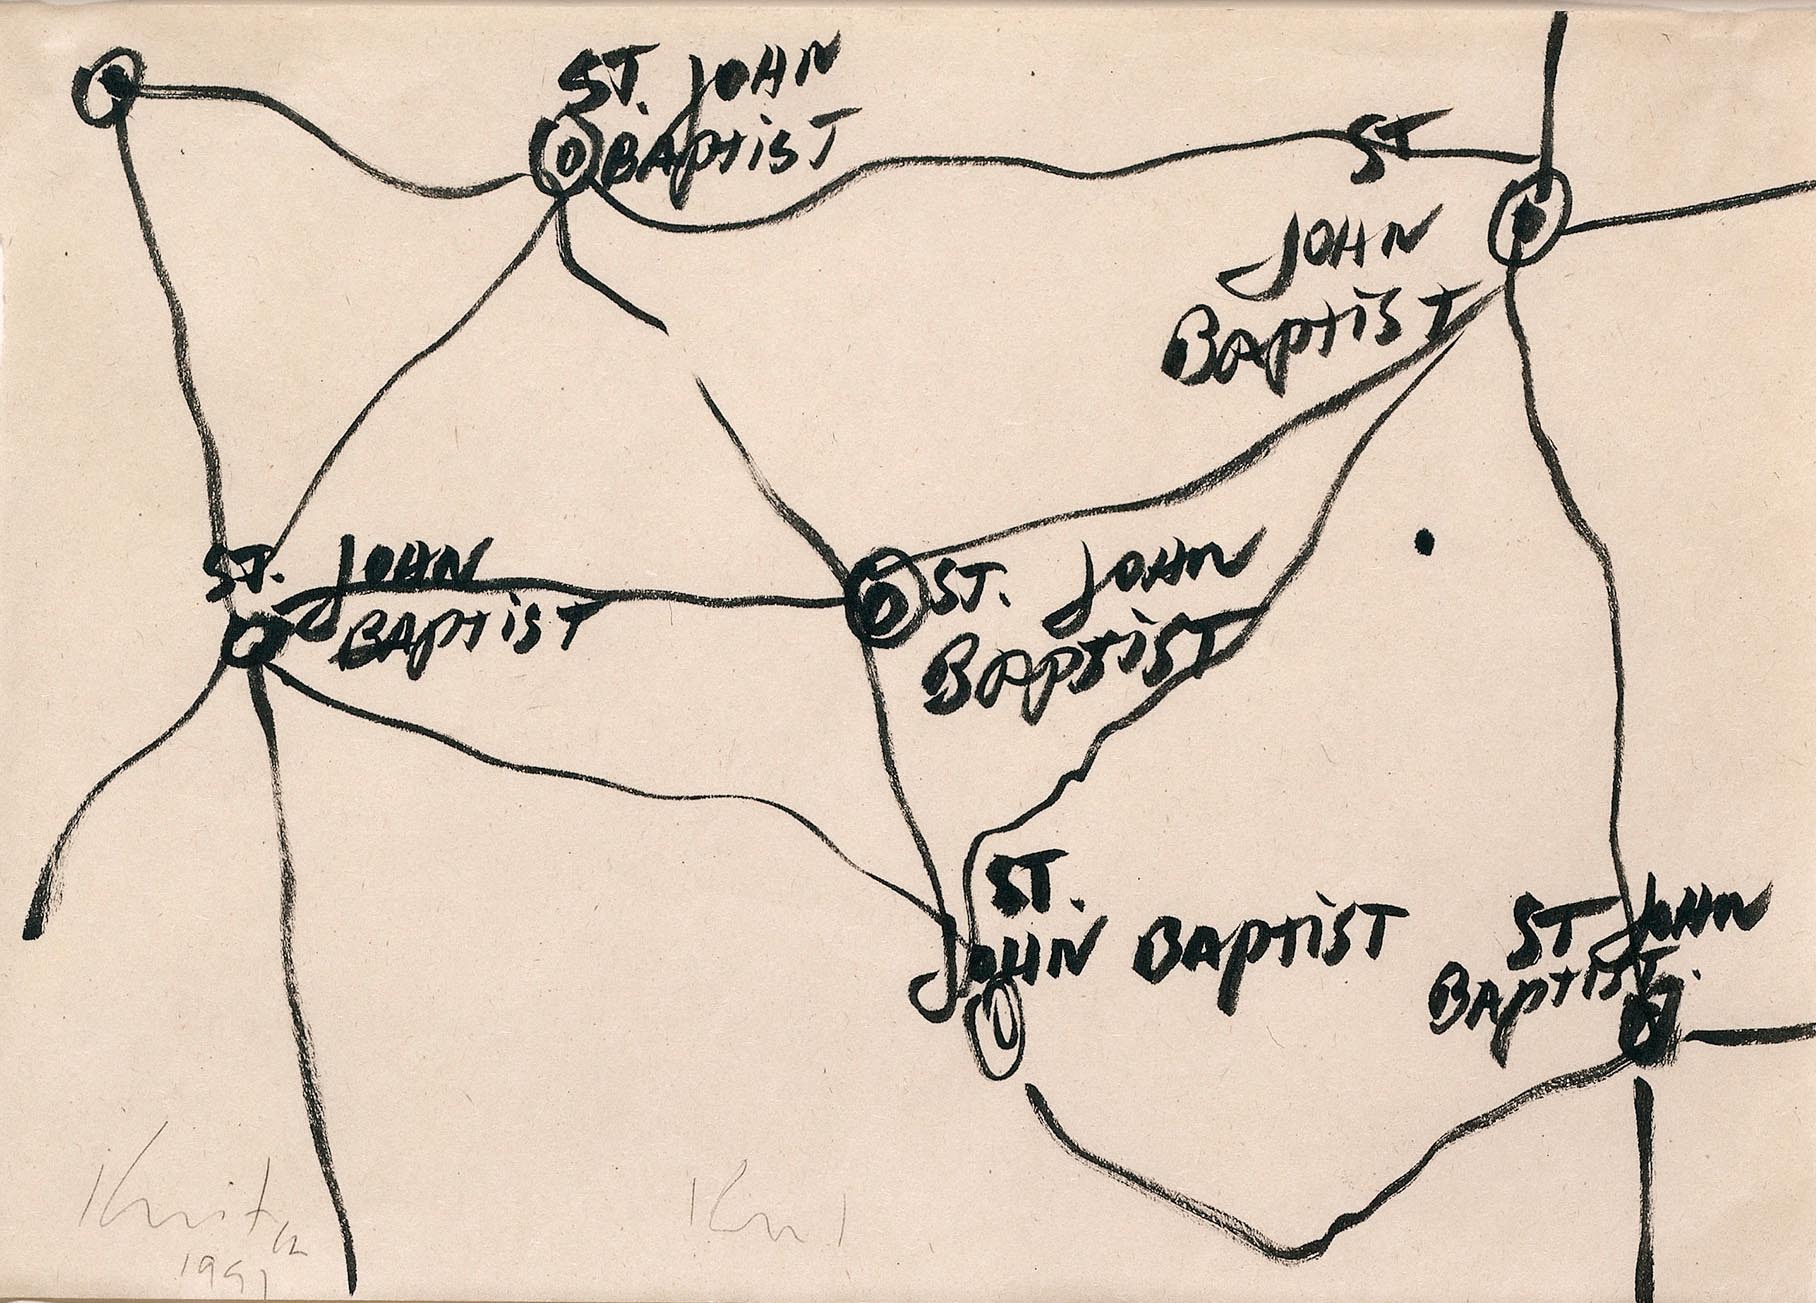 ST. JOHN
BAPTIST
ST
JOHN
BAPTIST
ST. JOHN
BAPTIST
ST. JOHN
BAPTIST
ST.
JOHN BAPTIST
ST JOHN
BAPTIST.